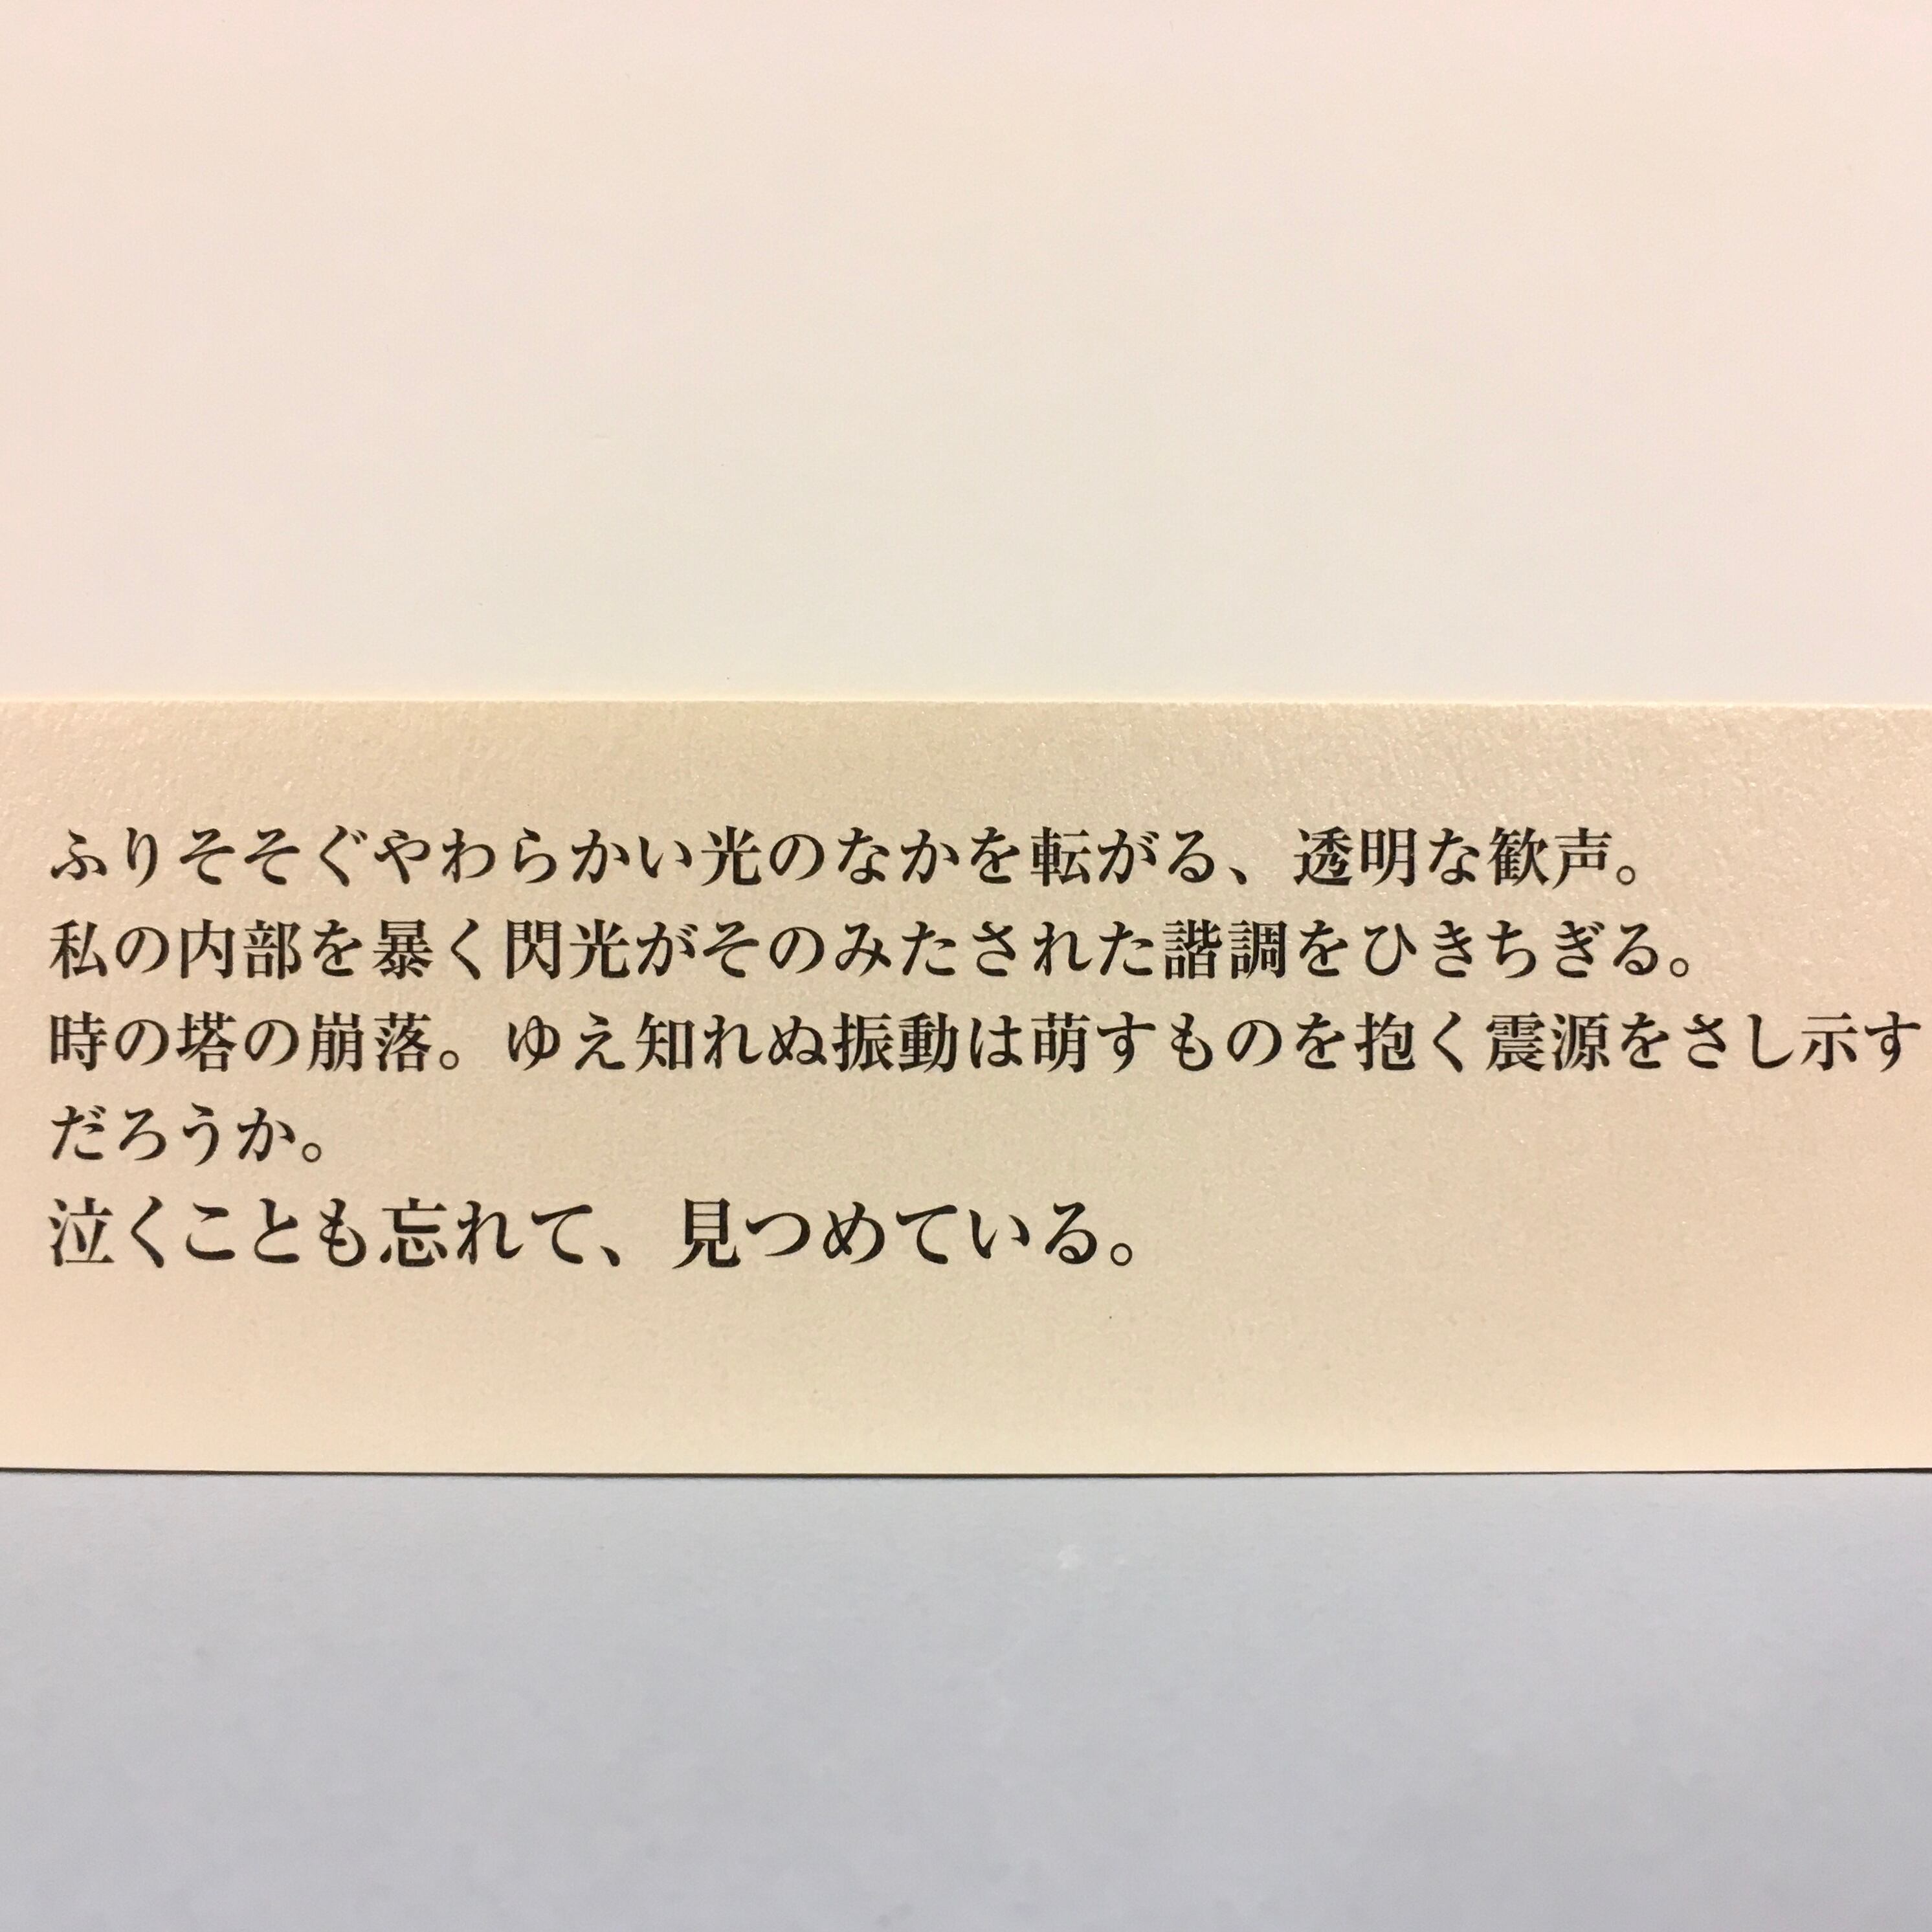 ふりそそぐやわらかい光のなかを転がる、透明な歓声。
私の内部を暴く閃光がそのみたされた諧調をひきちぎる。
時の塔の崩落。ゆえ知れぬ振動は萌すものを抱く震源をさし示す
だろうか。
泣くことも忘れて、見つめている。